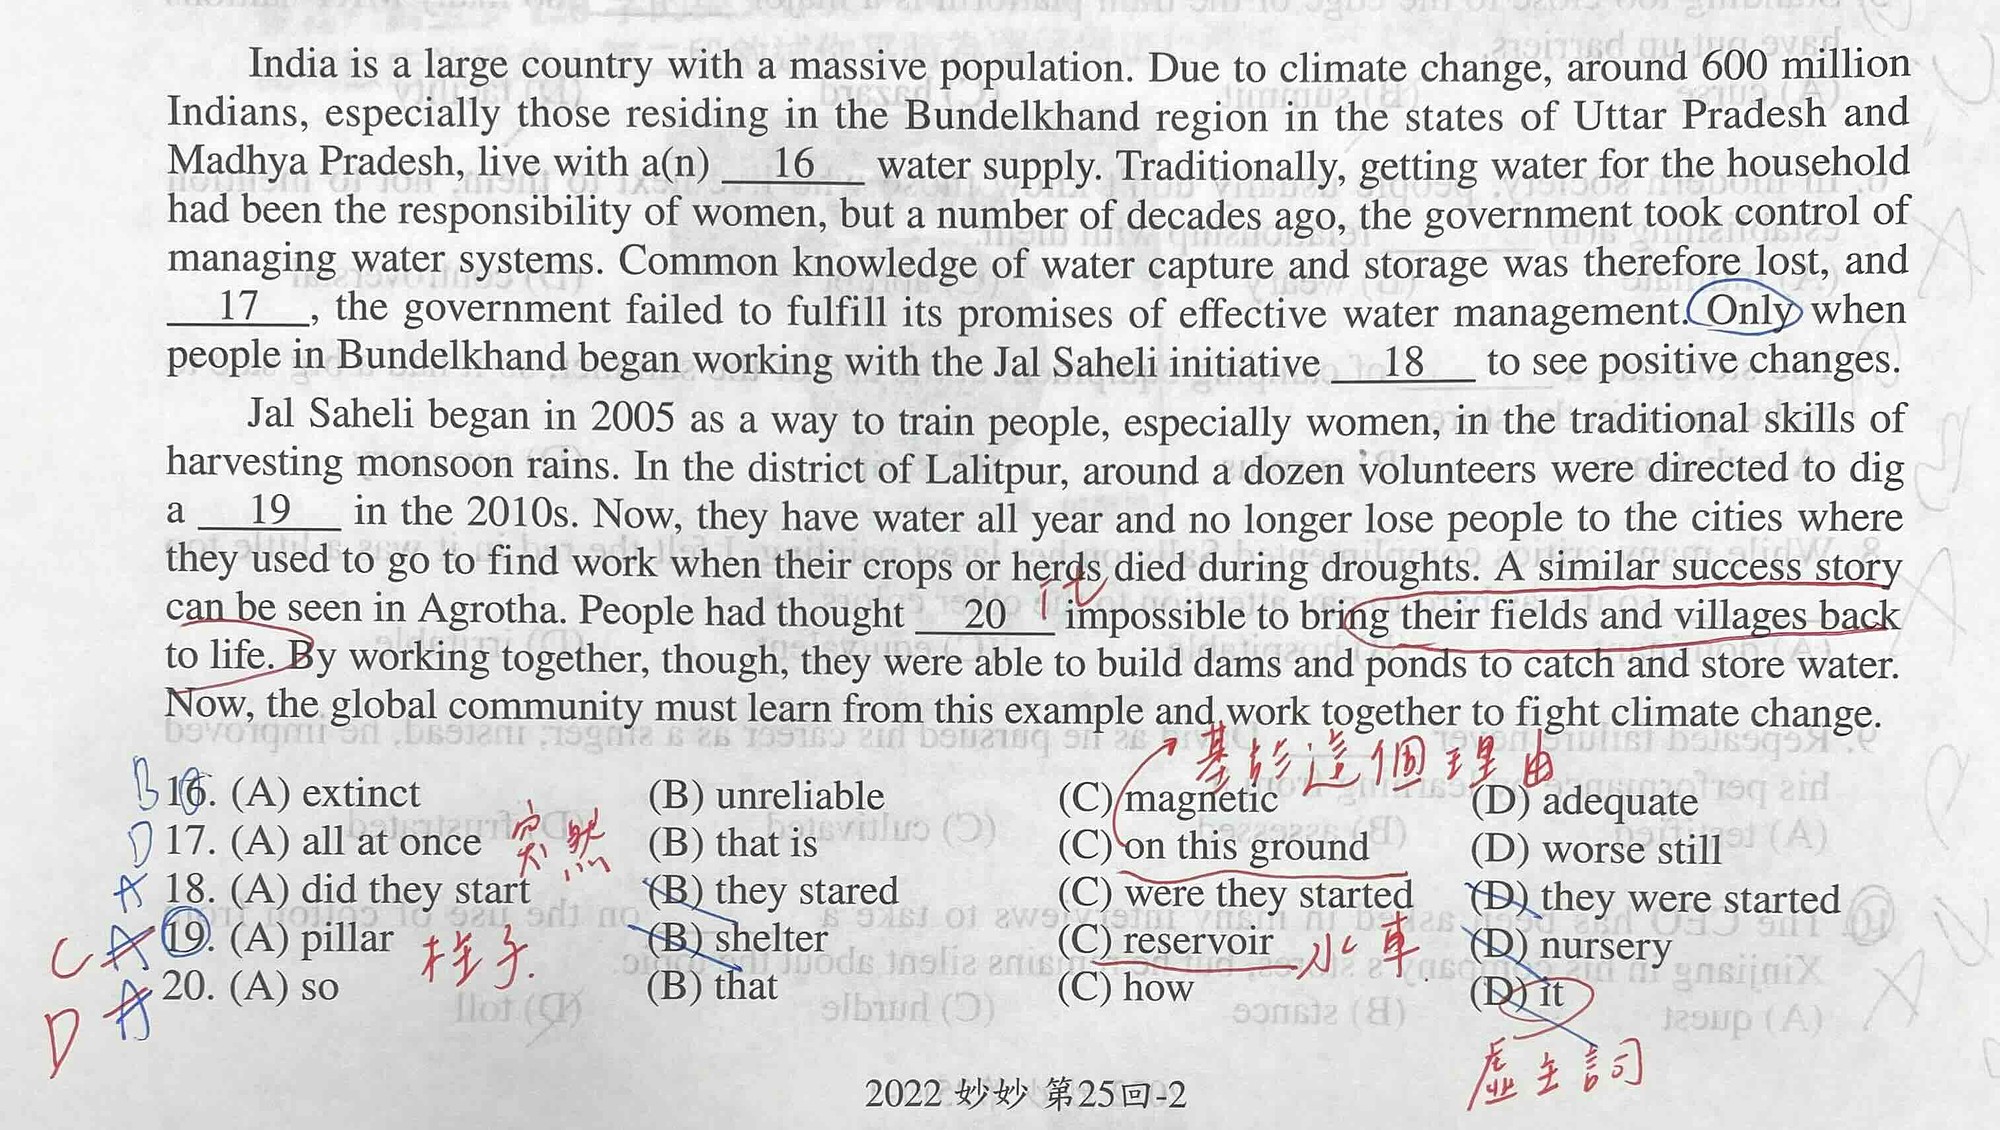 India is a large country with a massive population. Due to climate change, around 600 million
Indians, especially those residing in the Bundelkhand region in the states of Uttar Pradesh and
Madhya Pradesh, live with a(n) 16 water supply. Traditionally, getting water for the household
had been the responsibility of women, but a number of decades ago, the government took control of
managing water systems. Common knowledge of water capture and storage was therefore lost, and
17, the government failed to fulfill its promises of effective water management. Only when
people in Bundelkhand began working with the Jal Saheli initiative 18 to see positive changes.
Jal Saheli began in 2005 as a way to train people, especially women, in the traditional skills of
harvesting monsoon rains. In the district of Lalitpur, around a dozen volunteers were directed to dig
a 19 in the 2010s. Now, they have water all year and no longer lose people to the cities where
they used to go to find work when their crops or herds died during droughts. A similar success story
it
can be seen in Agrotha. People had thought 20 impossible to bring their fields and villages back
to life. By working together, though, they were able to build dams and ponds to catch and store water.
Now, the global community must learn from this example and work together to fight climate change.
基於這個理由
B 16. (A) extinct (B) unreliable (C) magnetic (D) adequate
D 17. (A) all at once 突然 (B) that is (C) on this ground (D) worse still
A 18. (A) did they start (B) they stared (C) were they started (D) they were started
C A 19. (A) pillar 柱子. (B) shelter (C) reservoir 水庫 (D) nursery
D A 20. (A) so (B) that (C) how (D) it
虛主詞
2022 妙妙 第25回-2